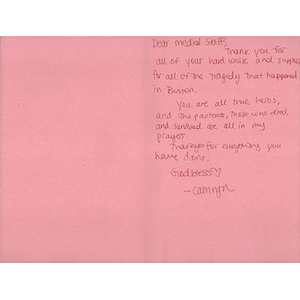 Dear medial staff,
Thank you for
all of your hard work and support
for all of the tragedy that happened
in Boston.
You are all true heros,
and the patients, those who died
and survived are all in my
prayer.
Thank you for everything you
have done.
God bless♡
--Camryn